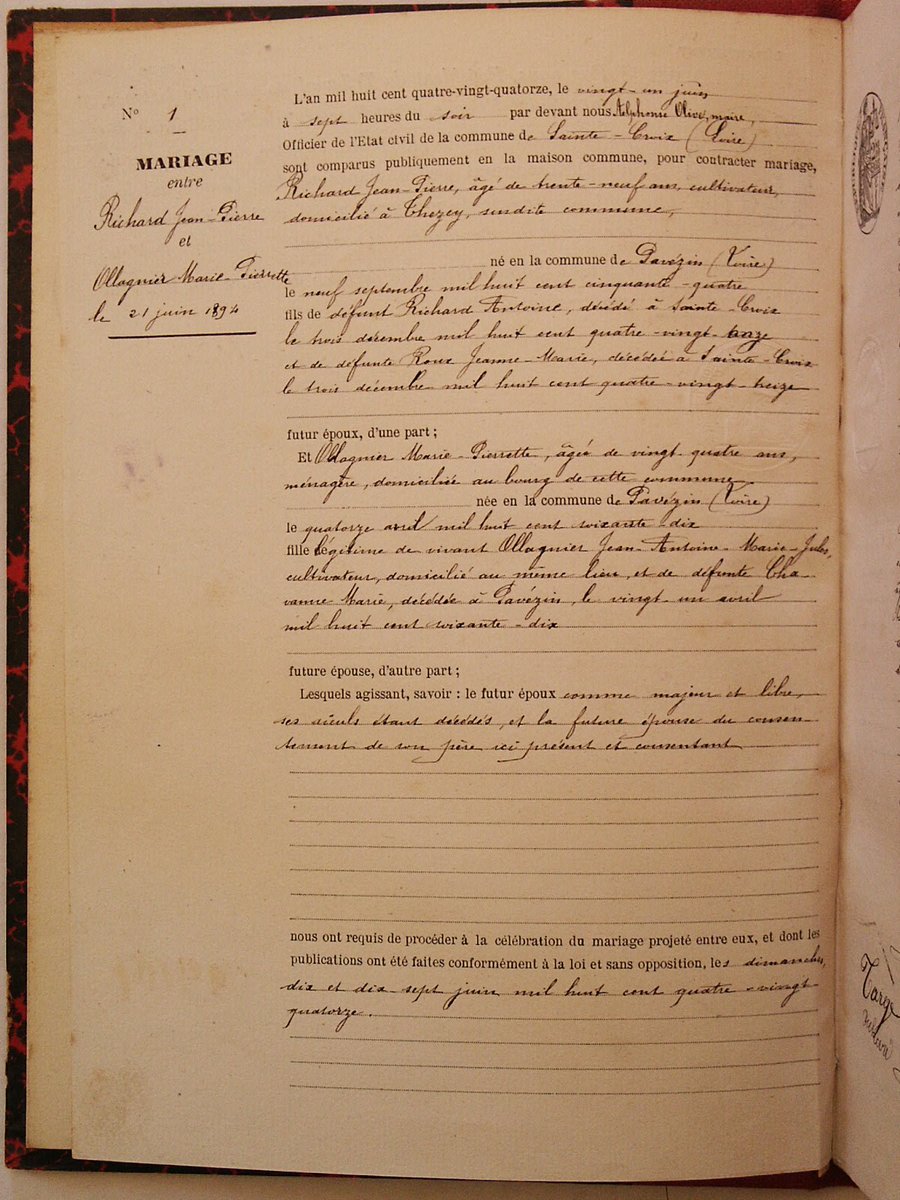 N° 1
MARIAGE
entre
Richard Jean-Pierre
et
Ollagnier Marie-Pierrette
le 21 juin 1894
L'an mil huit cent quatre-vingt-quatorze, le vingt-un juin
à sept heures du soir par devant nous Alphonse Olive, maire,
Officier de l'Etat civil de la commune de Sainte-Croix (Loire)
sont comparus publiquement en la maison commune, pour contracter mariage,
Richard Jean-Pierre, âgé de trente-neuf ans, cultivateur,
domicilié à Thezey, susdite commune,
né en la commune de Pavézin (Loire)
le neuf septembre mil huit cent cinquante-quatre
fils de défunt Richard Antoine, décédé à Sainte-Croix
le trois décembre mil huit cent quatre-vingt-onze
et de défunte Roux Jeanne-Marie, décédée à Sainte-Croix
le trois décembre mil huit cent quatre-vingt treize
futur époux, d'une part ;
Et Ollagnier Marie-Pierrette, âgée de vingt-quatre ans,
ménagère, domiciliée au bourg de cette commune
née en la commune de Pavézin (Loire)
le quatorze avril mil huit cent soixante-dix
fille légitime de vivant Ollagnier Jean-Antoine-Marie-Jules,
cultivateur, domicilié au même lieu, et de défunte Cha-
vanne Marie, décédée à Pavézin, le vingt un avril
mil huit cent soixante-dix
future épouse, d'autre part ;
Lesquels agissant, savoir : le futur époux comme majeur et libre,
ses aïeuls étant décédés, et la future épouse du consen
tement de son père ici présent et consentant
nous ont requis de procéder à la célébration du mariage projeté entre eux, et dont les
publications ont été faites conformément à la loi et sans opposition, les dimanches,
dix et dix-sept juin mil huit cent quatre-vingt
quatorze.
Targe